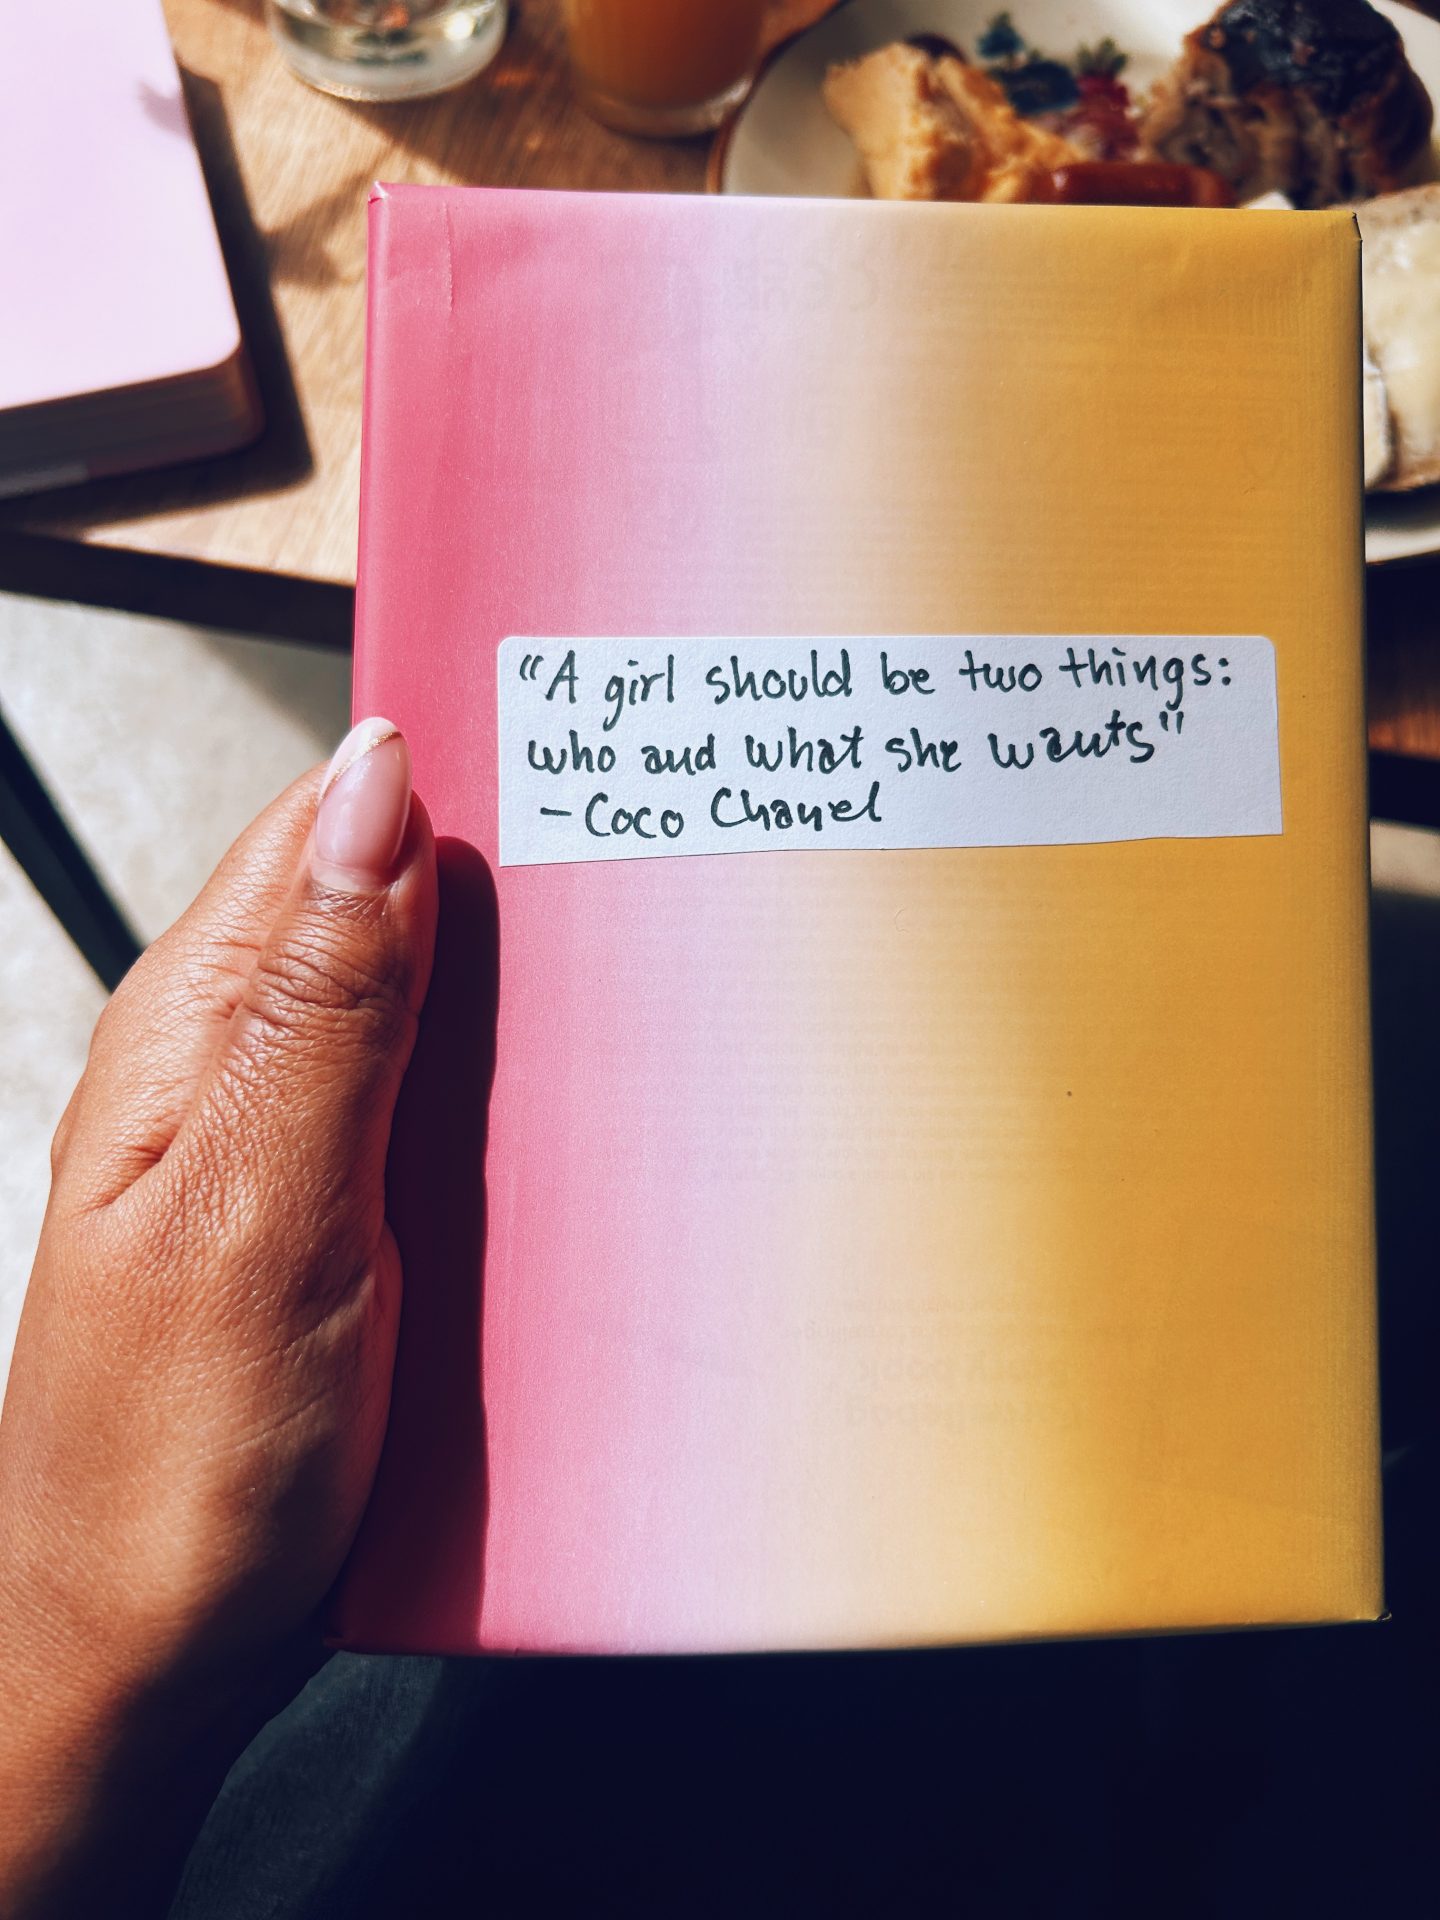 "A girl should be two things:
who and what she wants"
- Coco Chanel